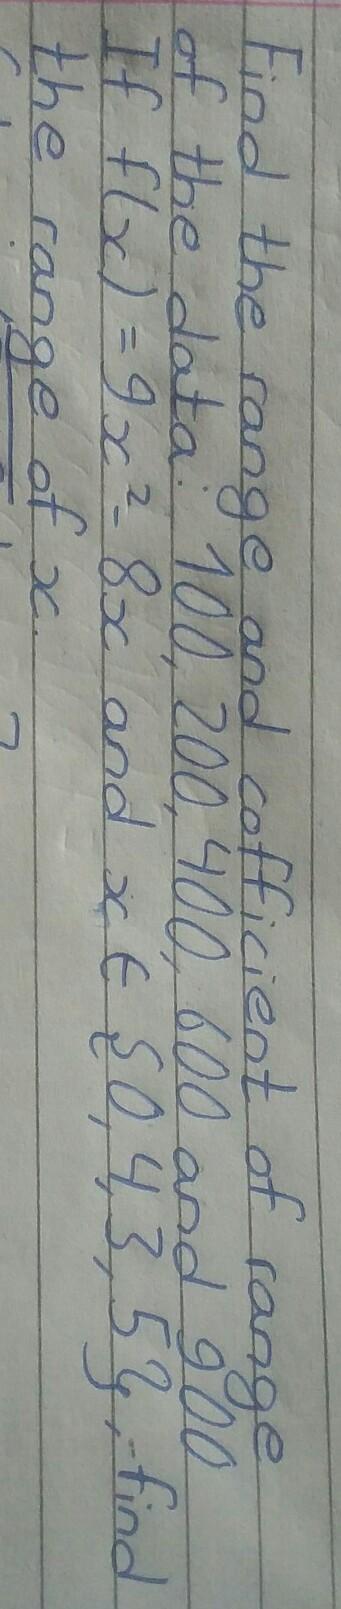 Find the range and cofficient of range
of the data: 100, 200, 400, 600 and 900
If f(x) = 9x² - 8x and x ∈ {0, 4, 3, 5}, find
the range of x.